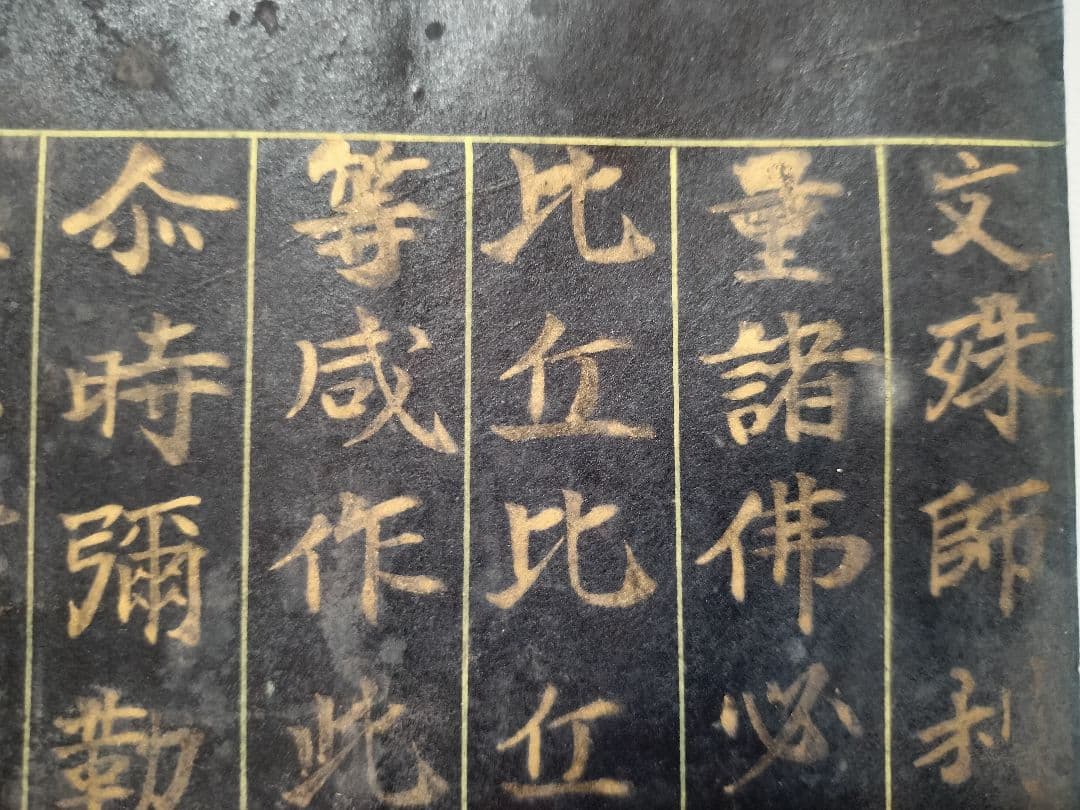 文殊師利
量諸佛必
比丘比丘
等咸作此
尒時彌勒